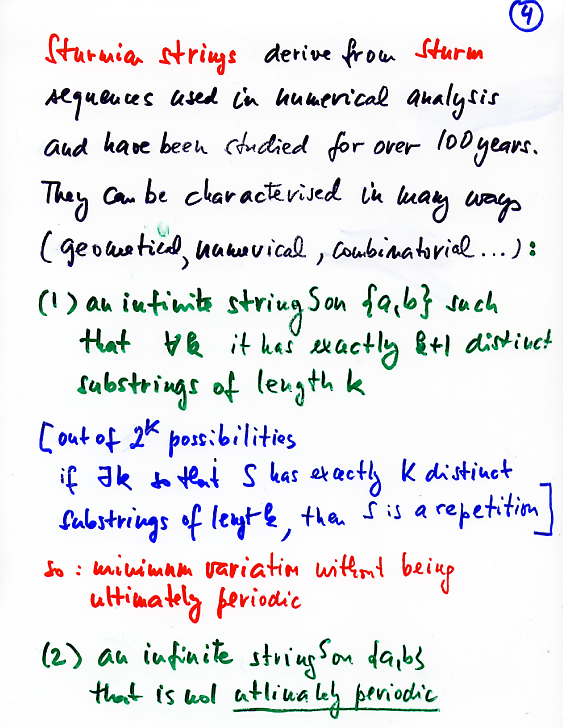 4
Sturmian strings derive from Sturm
sequences used in numerical analysis
and have been studied for over 100 years.
They can be characterised in many ways
(geometical, numerical, combinatorial ...):
(1) an infinite string S on {a,b} such
that ∀k it has exactly k+1 distinct
substrings of length k
[out of 2^k possibilities
if ∃k so that S has exactly k distinct
substrings of lengt k, then S is a repetition]
so: minimum variation without being
ultimately periodic
(2) an infinite string S on {a,b}
that is not utlimately periodic